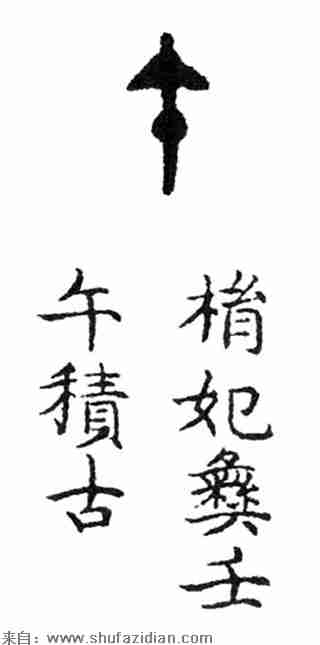 妃彝壬
午積古
来自：www.shufazidian.com